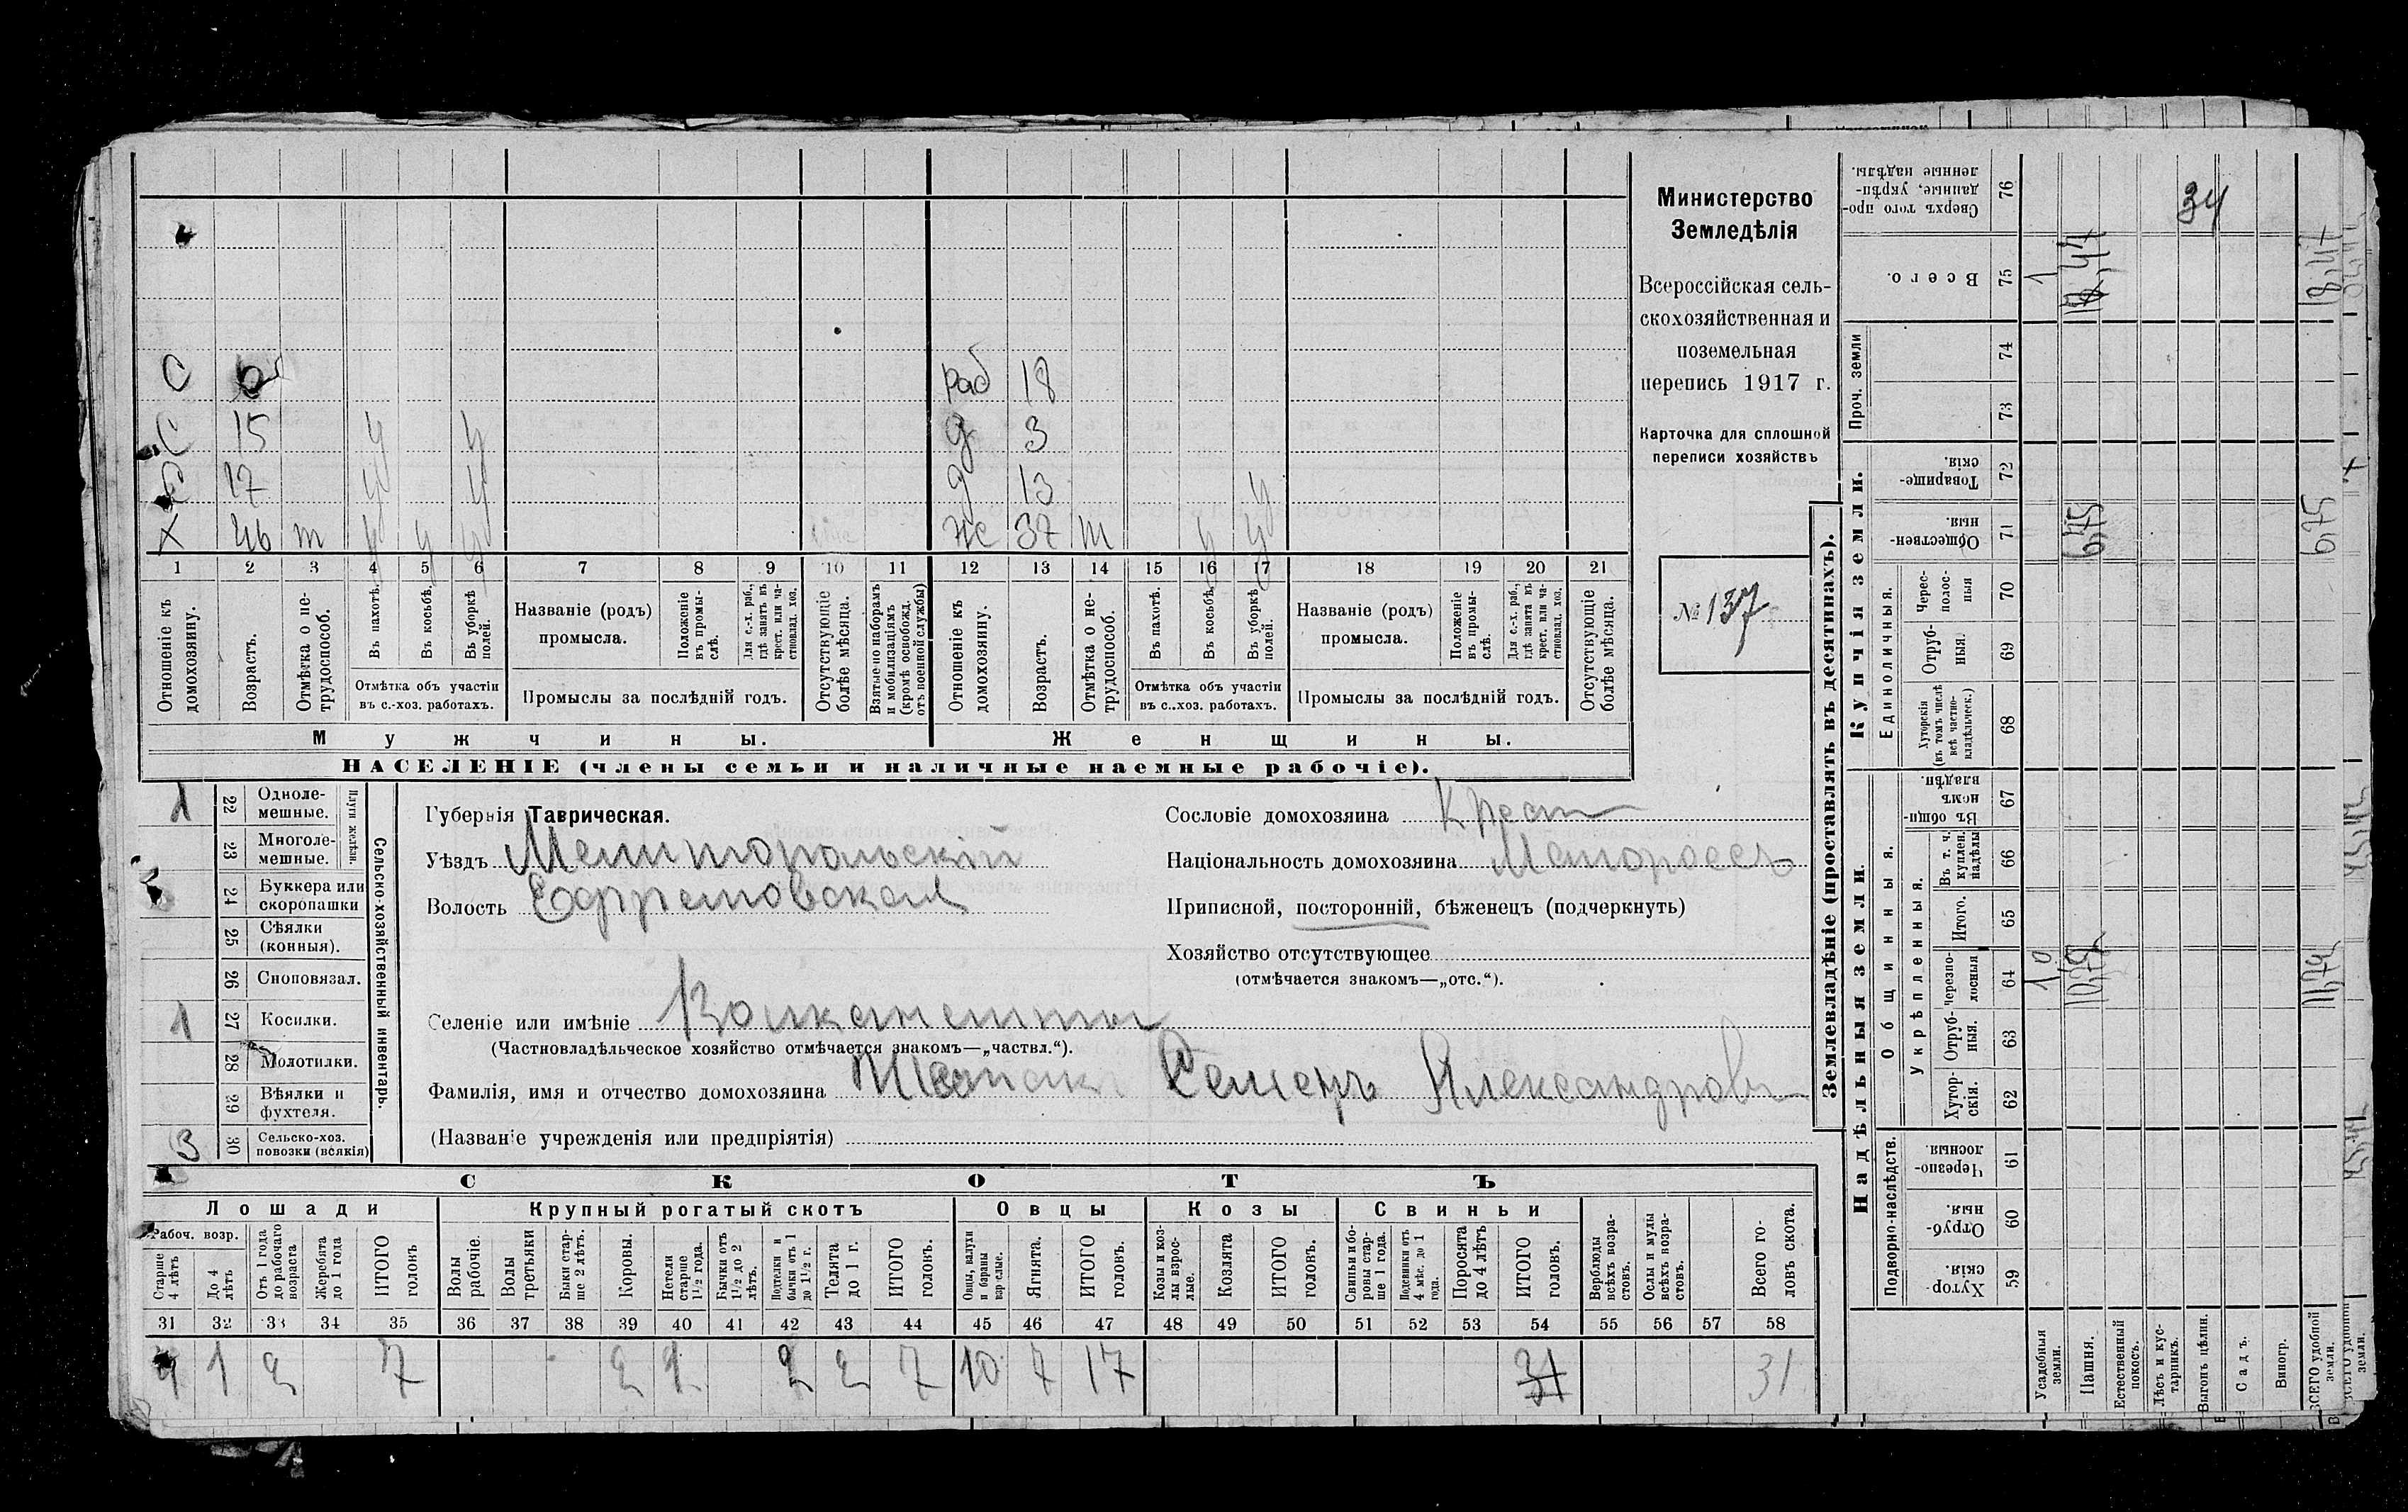 С 6 раб 18
С 15 у у д 3
С 17 у у д 13 у
Х 46 т у у у ж 37 т у у
1 2 3 4 5 6 7 8 9 10 11 12 13 14 15 16 17 18 19 20 21
Отношеніе къ домохозяину.
Возрастъ.
Отмѣтка о не-трудоспособ.
Въ пахотѣ.
Въ косьбѣ.
Въ уборкѣ полей.
Отмѣтка объ участіи
въ с.-хоз. работахъ.
Названіе (родъ)
промысла.
Положеніе въ промы-слѣ.
Для с.-х. раб., гдѣ занятъ въ крест. или ча-стновлад. хоз.
Промыслы за послѣдній годъ.
Отсутствующіе болѣе мѣсяца.
Взятые по наборамъ и мобилизаціямъ (кромѣ освобожд. отъ военной службы)
Отношеніе къ домохозяину.
Возрастъ.
Отмѣтка о не-трудоспособ.
Въ пахотѣ.
Въ косьбѣ.
Въ уборкѣ полей.
Отмѣтка объ участіи
въ с.-хоз. работахъ.
Названіе (родъ)
промысла.
Положеніе въ промы-слѣ.
Для с.-х. раб., гдѣ занята въ крест. или ча-стновлад. хоз.
Промыслы за послѣдній годъ.
Отсутствующіе болѣе мѣсяца.
Мужчины. Женщины.
НАСЕЛЕНІЕ (члены семьи и наличные наемные рабочіе).
Министерство
Земледѣлія
Всероссійская сель-
скохозяйственная и
поземельная
перепись 1917 г.
Карточка для сплошной
переписи хозяйствъ
№ 137
1 22 Одноле-мешные.
23 Многоле-мешные.
Плуги желѣзн.
24 Буккера или скоропашки
25 Сѣялки (конныя).
26 Сноповязал.
1 27 Косилки.
28 Молотилки.
29 Вѣялки и фухтеля.
3 30 Сельско-хоз. повозки (всякія)
Сельско-хозяйственный инвентарь.
Губернія Таврическая.
Уѣздъ Мелитопольскій
Волость Ефремовская
Селеніе или имѣніе
(Частновладѣльческое хозяйство отмѣчается знакомъ—„частвл.“).
Фамилія, имя и отчество домохозяина Семенъ Александровъ
(Названіе учрежденія или предпріятія)
Сословіе домохозяина Крест
Національность домохозяина Малороссъ
Приписной, посторонній, бѣженецъ (подчеркнуть)
Хозяйство отсутствующее
(отмѣчается знакомъ—„отс.“).
СКОТЪ
Лошади Крупный рогатый скотъ Овцы Козы Свиньи
Рабоч. возр.
Старше 4 лѣтъ
До 4 лѣтъ
Отъ 1 года до рабочаго возраста
Жеребята до 1 года
ИТОГО головъ
Волы рабочіе.
Волы третьяки
Быки стар-ше 2 лѣтъ.
Коровы.
Нетели старше 1½ года.
Бычки отъ 1½ до 2 лѣтъ.
Подтелки и бычки отъ 1 до 1½ г.
Телята до 1 г.
ИТОГО головъ.
Овцы, валухи и бараны взрослые.
Ягнята.
ИТОГО головъ.
Козы и коз-лы взрос-лые.
Козлята
ИТОГО головъ.
Свиньи и бо-ровы стар-ше 1 года.
Подсвинки отъ 4 мѣс. до 1 года.
Поросята до 4 лѣтъ
ИТОГО головъ.
Верблюды всѣхъ возра-стовъ.
Ослы и мулы всѣхъ возра-стовъ.
Всего го-ловъ скота.
31 32 33 34 35 36 37 38 39 40 41 42 43 44 45 46 47 48 49 50 51 52 53 54 55 56 57 58
4 1 2 7 2 1 2 2 7 10 7 17 31 31
Землевладѣніе (проставлять въ десятинахъ).
Надѣльныя земли. Купчія земли. Проч. земли
Подворно-наслѣдств.
Общинныя.
Укрѣпленныя.
Единоличныя.
Хутор-скія. 59
Отруб-ныя. 60
Черезпо-лосныя 61
Хутор-скія. 62
Отруб-ныя. 63
Черезпо-лосныя 64
Итого. 65
Въ т. ч. куплен. надѣлы 66
Въ общи-номъ владѣн. 67
Хуторскія (въ томъ числѣ всѣ частно-владѣльческ.) 68
Отруб-ныя. 69
Черес-полос-ныя 70
Обществен-ныя. 71
Товарище-скія. 72
73
74
Всего. 75
Сверхъ того про-данные, укрѣп-ленные надѣлы. 76
Усадебныя земли. 1,0 1
Пашня. 10,72 6,75
Естественный покосъ.
Лѣсъ и кус-тарникъ.
Выгонъ цѣлин. 34
Садъ.
Виногр.
ВСЕГО удобной земли. 11,72 6,75 18,47